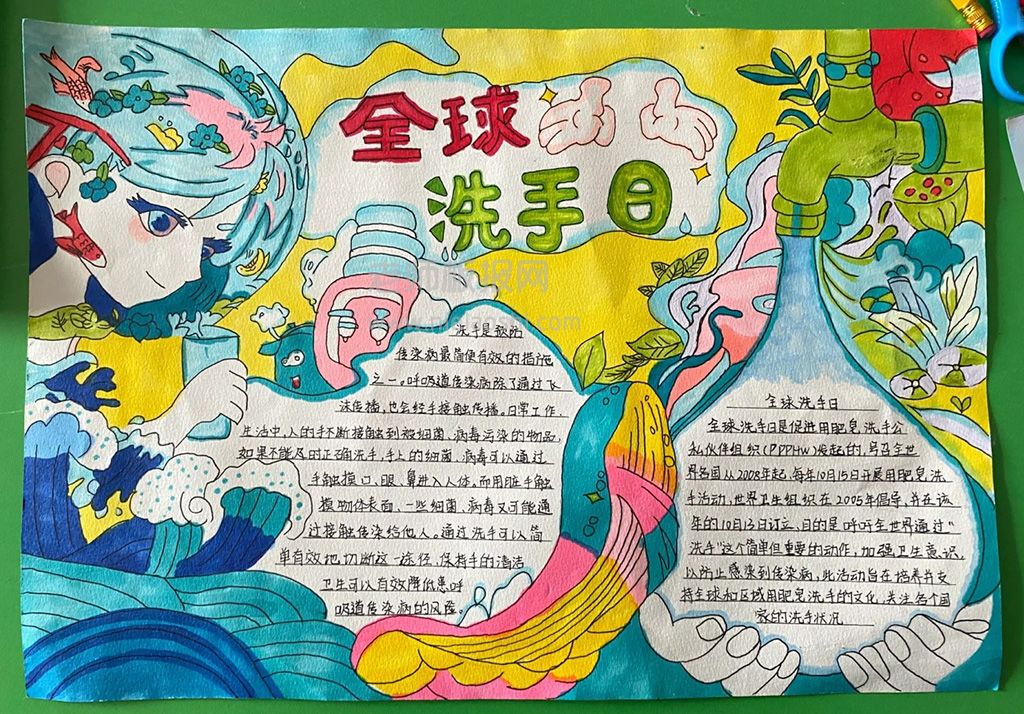 全球
洗手日
洗手是预防
传染病最简便有效的措施
之一。呼吸道传染病除了通过飞
沫传播，也会经手接触传播。日常工作、
生活中，人的手不断接触到被细菌、病毒污染的物品，
如果不能及时正确洗手，手上的细菌、病毒可以通过
手触摸口、眼、鼻进入人体，而用脏手触
摸物体表面，一些细菌、病毒又可能通
过接触传染给他人，通过洗手可以简
单有效地切断这一途径，保持手的清洁
卫生可以有效降低患呼
吸道传染病的风险。
全球洗手日
全球洗手日是促进用肥皂洗手公
私伙伴组织(PPPHW)发起的，号召全世
界各国从2008年起，每年10月15日开展用肥皂洗
手活动，世界卫生组织在2005年倡导，并在该
年的10月13日订立，目的是呼吁全世界通过“
洗手”这个简单但重要的动作，加强卫生意识，
以防止感染到传染病，此活动旨在培养并支
持全球和区域用肥皂洗手的文化，关注各个国
家的洗手状况